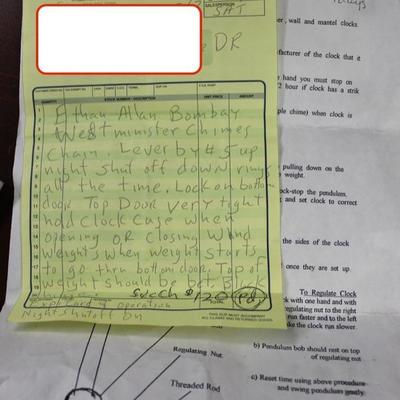 SALESPERSON
SAT
DR
QUANTITY
STOCK NUMBER - DESCRIPTION
UNIT PRICE
AMOUNT
Ethan Allan Bombay
Westminister Chimes
Chain. Lever by #5 up
night shut off down rings
all the time. Lock on bottom
door Top Door very tight
hold clock case when
opening OR closing Wind
weights when weight starts
to go thru bottom door. Top of
weight should be bet. B/
hinge
SVCCh $120
TOTAL
Explained operation
Night shutoff on
THIS SLIP MUST ACCOMPANY
ALL CLAIMS AND RETURNED GOODS.
er, wall and mantel clocks.
facturer of the clock that it
hand you must stop on
/2 hour if clock has a strik
ple chime) when clock is
pulling down on the
weight.
ock-stop the pendulum.
and set clock to correct
the sides of the clock
once they are set up.
To Regulate Clock
k with one hand and with
regulating nut to the right
run faster and to the left
ke the clock run slower.
b) Pendulum bob should rest on top
of regulating nut
c) Reset time using above procedure
and swing pendulum gently.
Regulating Nut.
Threaded Rod